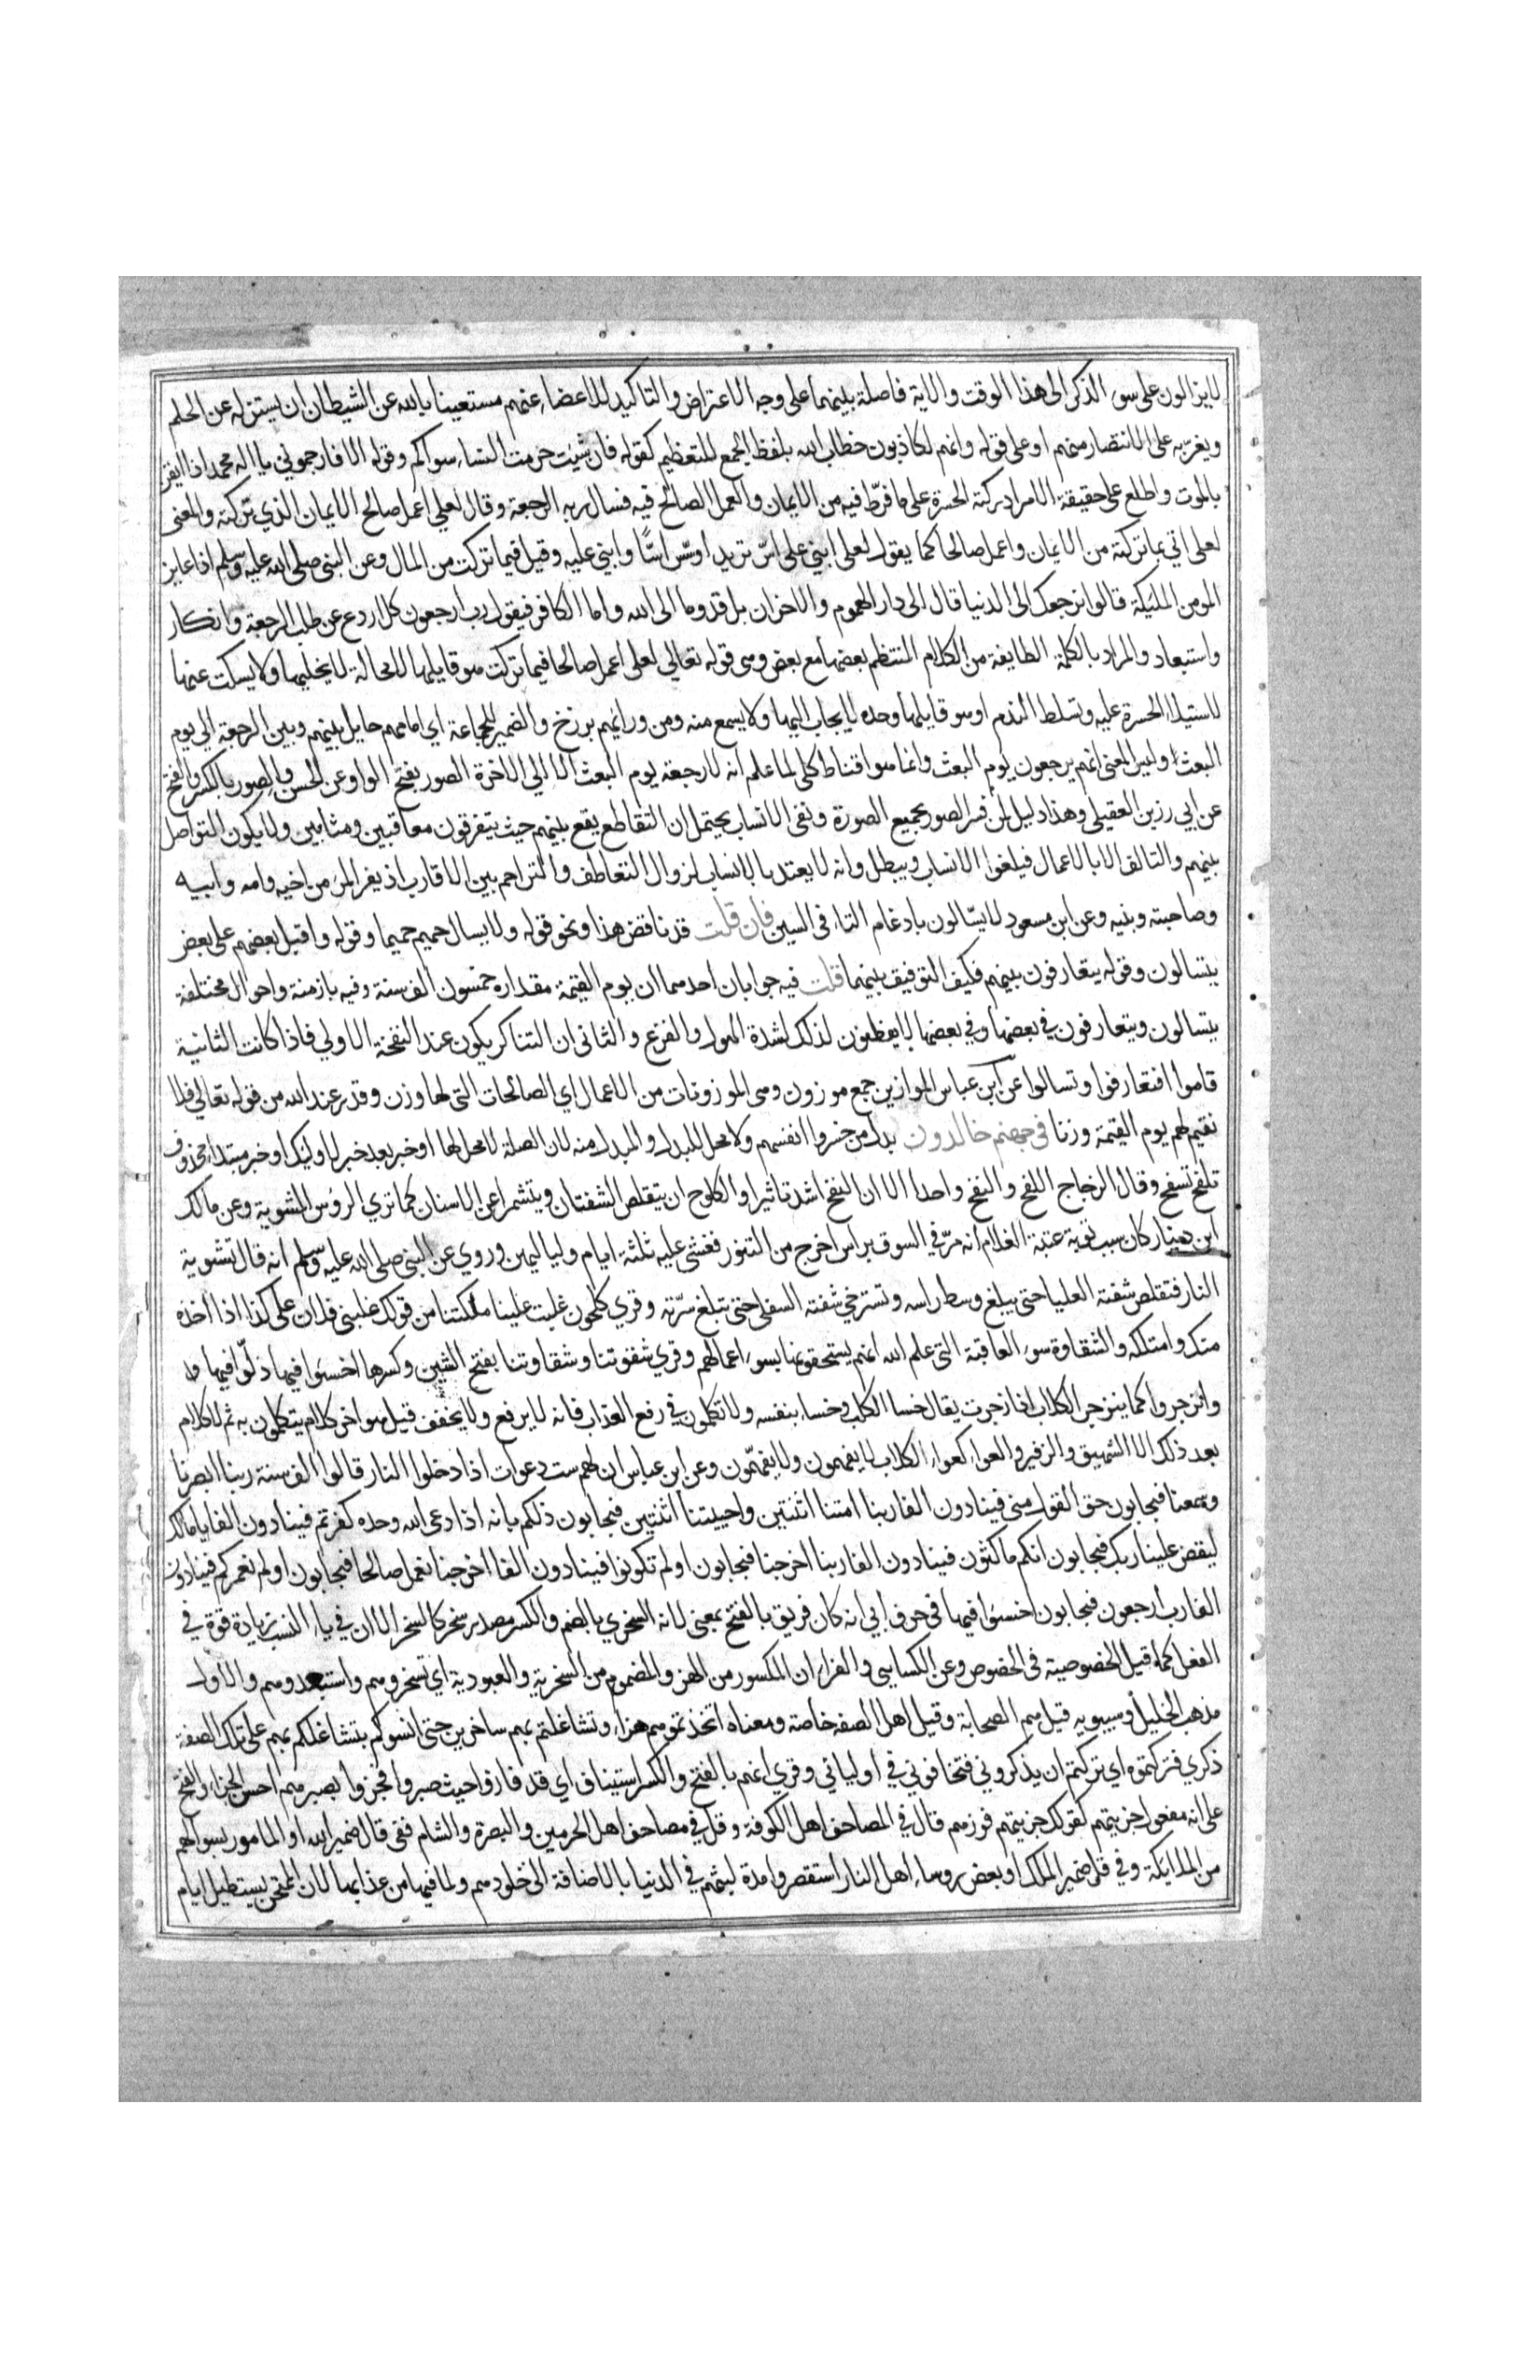 لايزالون على سوء الذكر الى هذا الوقت والاية فاصلة بينهما على وجه الاعتراض والتاكيد للاغضاء عنهم مستعينا بالله عن الشيطان ان يستنزله عن الحلم
ويغريه على الانتصار منهم او على قوله وانهم لكاذبون خطاب الله بلفظ الجمع للتعظيم كقوله فان شئت حرمت النساء سواكم وقوله الا فارحموني يا اله محمد اذا ايقن
بالموت واطلع على حقيقة الامر ادركته الحسرة على ما فرط فيه من الايمان والعمل الصالح فيه فسال ربه الرجعة وقال لعلي اعمل صالحا الايمان الذي تركته والمعنى
لعلى اتي بما تركته من الايمان واعمل صالحا كما يقول لعلى ابني على اسّ تريد اوسّس اسًّا وابني عليه وقيل فيما تركت من المال وعن النبى صلى الله عليه وسلم اذا عاين
المومن المليكة قالوا نرجعك الى الدنيا قال الى دار الهموم والاحزان بل قدوما الى الله واما الكافر فيقول رب ارجعون كلا ردع عن طلب الرجعة وانكار
واستبعاد والمراد بالكلمة الطايفة من الكلام المنتظم بعضها مع بعض وهى قوله تعالى لعلى اعمل صالحا فيما تركت هو قايلها لامحالة لايخليها ولا يسكت عنها
لاستيلاء الحسرة عليه وتسلط الندم او هو قايلها وحده لايجاب اليها ولا يسمع منه ومن ورائهم برزخ والضمير للجماعة اي امامهم حايل بينهم وبين الرجعة الى يوم
البعث وليس المعنى انهم يرجعون يوم البعث وانما هو اقناط كلى لما علم انه لا رجعة يوم البعث الا الى الاخرة الصور بفتح الواو عن الحسن والصور بالكسر والفتح
عن ابي رزين العقيلى وهذا دليل لمن فسر الصور بجميع الصورة ونفى الانساب يحتمل ان التقاطع يقع بينهم حيث يتفرقون معاقبين ومثابين ولايكون التواصل
بينهم والتالف الا بالاعمال فيلغوا الانساب ويبطل وانه لا يعتد بالانساب لزوال التعاطف والتراحم بين الاقارب اذ يفر المرء من اخيه وامه وابيه
وصاحبته وبنيه وعن ابن مسعود لا يسّالون بادغام التاء فى السين فان قلت قد ناقض هذا ونحو قوله ولايسال حميم حميما وقوله واقبل بعضهم على بعض
يتسالون وقوله يتعارفون بينهم فكيف التوفيق بينهما قلت فيه جوابان احدهما ان يوم القيمة مقداره خمسون الف سنة وفيه بازمنة واحوال مختلفة
يتسالون ويتعارفون في بعضها وفي بعضها لايفطنون لذلك لشدة الهول والفزع والثانى ان التناكر يكون عند النفخة الاولي فاذا كانت الثانية
قاموا افتعارفوا وتسالوا عن ابن عباس الموازين جمع موزون وهى الموزونات من الاعمال اي الصالحات التى لها وزن وقدر عند الله من قوله تعالي فلا
نقيم لهم يوم القيمة وزنا فى جهنم خالدون بدل من خسروا انفسهم ولا محل للبدل والمبدل منه لان الصلة لا محل لها او خبر بعد خبر لاوليك او خبر مبتداء محذوف
تلفح تسفح وقال الزجاج اللفح والنفح واحدا الا ان النفح اشد تاثيرا والكلوح ان يتقلص الشفتان ويتشمرا عن الاسنان كما تري الروس المشوية وعن مالك
ابن دينار كان سبب توبة عتبة الغلام انه مرّ في السوق براس اخرج من التنور فغشى عليه ثلثة ايام ولياليهن وروي عن النبى صلى الله عليه وسلم انه قال تشويه
النار فتقلص شفته العليا حتى يبلغ وسط راسه وتسترخي شفته السفلى حتى تبلغ سرّته وقري كلحون غلبت علينا ملكتنا من قولك غلبنى فلان على كذا اذا اخذه
منك وامتلكه والشقاوة سوء العاقبة التى علم الله انهم يستحقونها بسوء اعمالهم وقري شقوتنا وشقاوتنا بفتح الشين وكسرها اخسئوا فيها ذلّوا فيها
وانزجروا كما ينزجر الكلاب اذا زجرت يقال خسا الكلب وخسا بنفسه ولا تكلمون في رفع العذاب فانه لا يرفع ولايخفف قيل هو اخر كلام يتكلمون به ثم لا كلام
بعد ذلك الا الشهيق والزفير والعواء كعواء الكلاب لايفهمون ولايفهّمون وعن ابن عباس ان لهم ست دعوات اذا دخلوا النار قالوا الف سنة ربنا ابصرنا
وسمعنا فيجابون حق القول منى فينادون الفا ربنا امتنا اثنتين واحييتنا اثنتين فيجابون ذلكم بانه اذا دعى الله وحده كفرتم فينادون الفا يا مالك
ليقض علينا ربك فيجابون انكم ماكثون فينادون الفا ربنا اخرجنا فيجابون اولم تكونوا فينادون الفا اخرجنا نعمل صالحا فيجابون اولم نعمركم فينادون
الفا رب ارجعون فيجابون اخسئوا فيها فى حرف ابي انه كان فريق بالفتح بمعنى لانه السخري بالضم والكسر مصدر سخر كالسخر الا ان في ياء النسب زيادة قوة في
الفعل كما قيل الخصوصية فى الخصوص وعن الكسايي والفراء ان المكسور من الهزء والمضموم من السخرية والعبودية اي تسخروهم واستبعدوهم والاول
مذهب الخليل وسيبويه قيل هم الصحابة وقيل اهل الصفه خاصة ومعناه اتخذتموهم هزاء وتشاغلتم بهم ساخرين حتى انسوكم بتشاغلكم بهم على تلك الصفة
ذكري فتركتموه اي تركتم ان يذكروني فتخافوني في اوليائي وقري انهم بالفتح والكسر استيناف اي قد فازوا حيث صبروا فجزوا بصبرهم احسن الجزاء والفتح
على انه مفعول جزيتهم كقولك جزيتهم فوزهم قال في المصاحف اهل الكوفة وقل في مصاحف اهل الحرمين والبصرة والشام ففى قال ضمير الله او المامور بسوالهم
من الملايكة وفي قل ضمير الملك او بعض روساء اهل النار استقصروا مدة لبثهم في الدنيا بالاضافة الى خلودهم ولما فيها من عذابها لان الممتحن يستطيل ايام